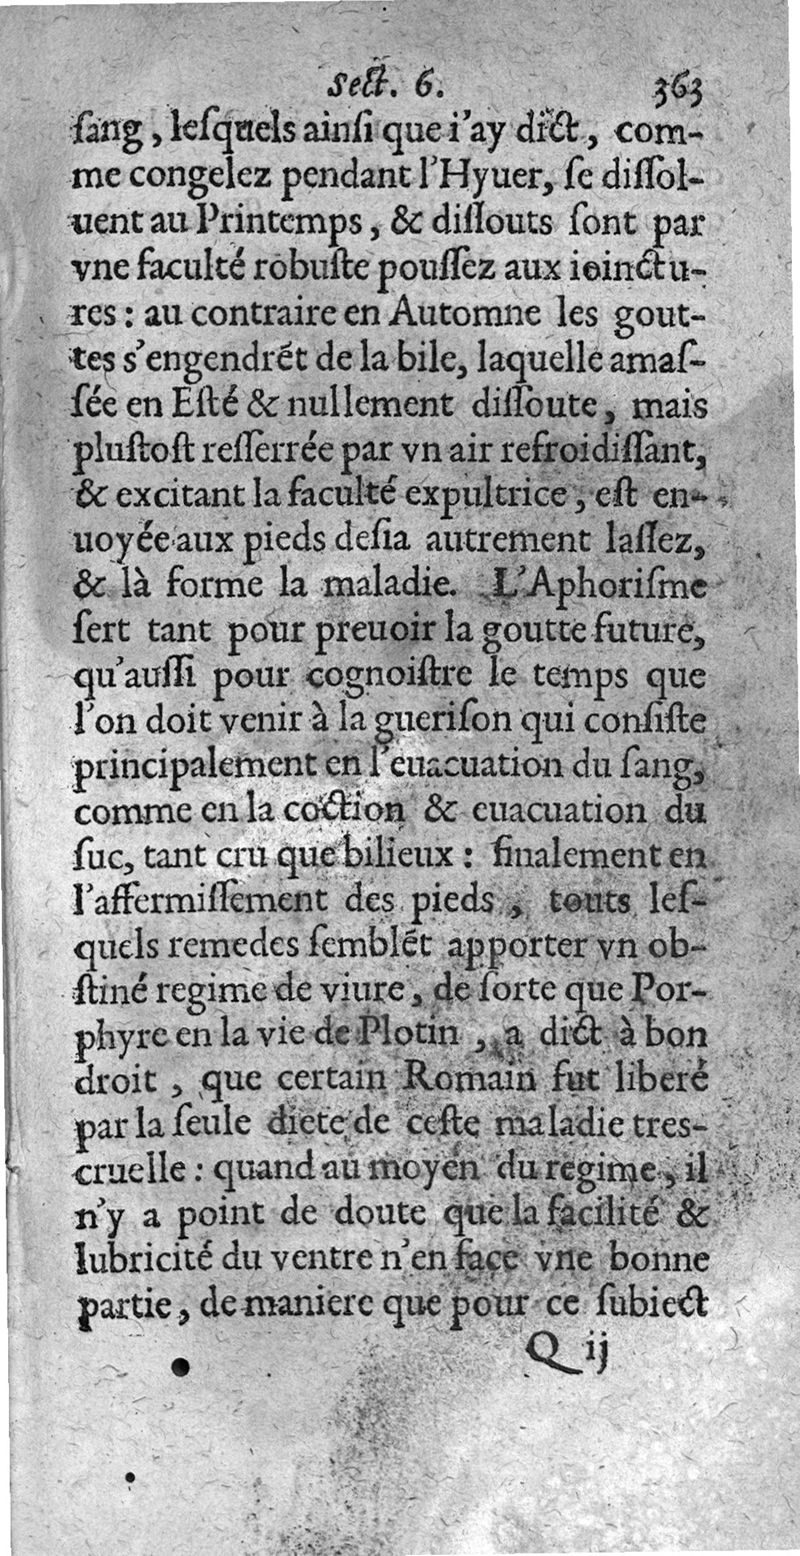 Sect. 6. 363
ſang, leſquels ainſi que i'ay dict, com-
me congelez pendant l'Hyuer, ſe diſſol-
uent au Printemps, & diſſouts ſont par
vne faculté robuſte pouſſez aux ioinctu-
res : au contraire en Automne les gout-
tes s'engendrẽt de la bile, laquelle amaſ-
ſée en Eſté & nullement diſſoute, mais
pluſtoſt reſſerrée par vn air refroidiſſant,
& excitant la faculté expultrice, eſt en-
uoyée aux pieds deſia autrement laſſez,
& là forme la maladie. L'Aphoriſme
ſert tant pour preuoir la goutte future,
qu'auſſi pour cognoiſtre le temps que
l'on doit venir à la gueriſon qui conſiſte
principalement en l'euacuation du ſang,
comme en la coction & euacuation du
ſuc, tant cru que bilieux : finalement en
l'affermiſſement des pieds, touts leſ-
quels remedes ſemblẽt apporter vn ob-
ſtiné regime de viure, de ſorte que Por-
phyre en la vie de Plotin, a dict à bon
droit, que certain Romain fut liberé
par la ſeule diete de ceſte maladie tres-
cruelle : quand au moyen du regime, il
n'y a point de doute que la facilité &
lubricité du ventre n'en face vne bonne
partie, de maniere que pour ce ſubiect
Q ij